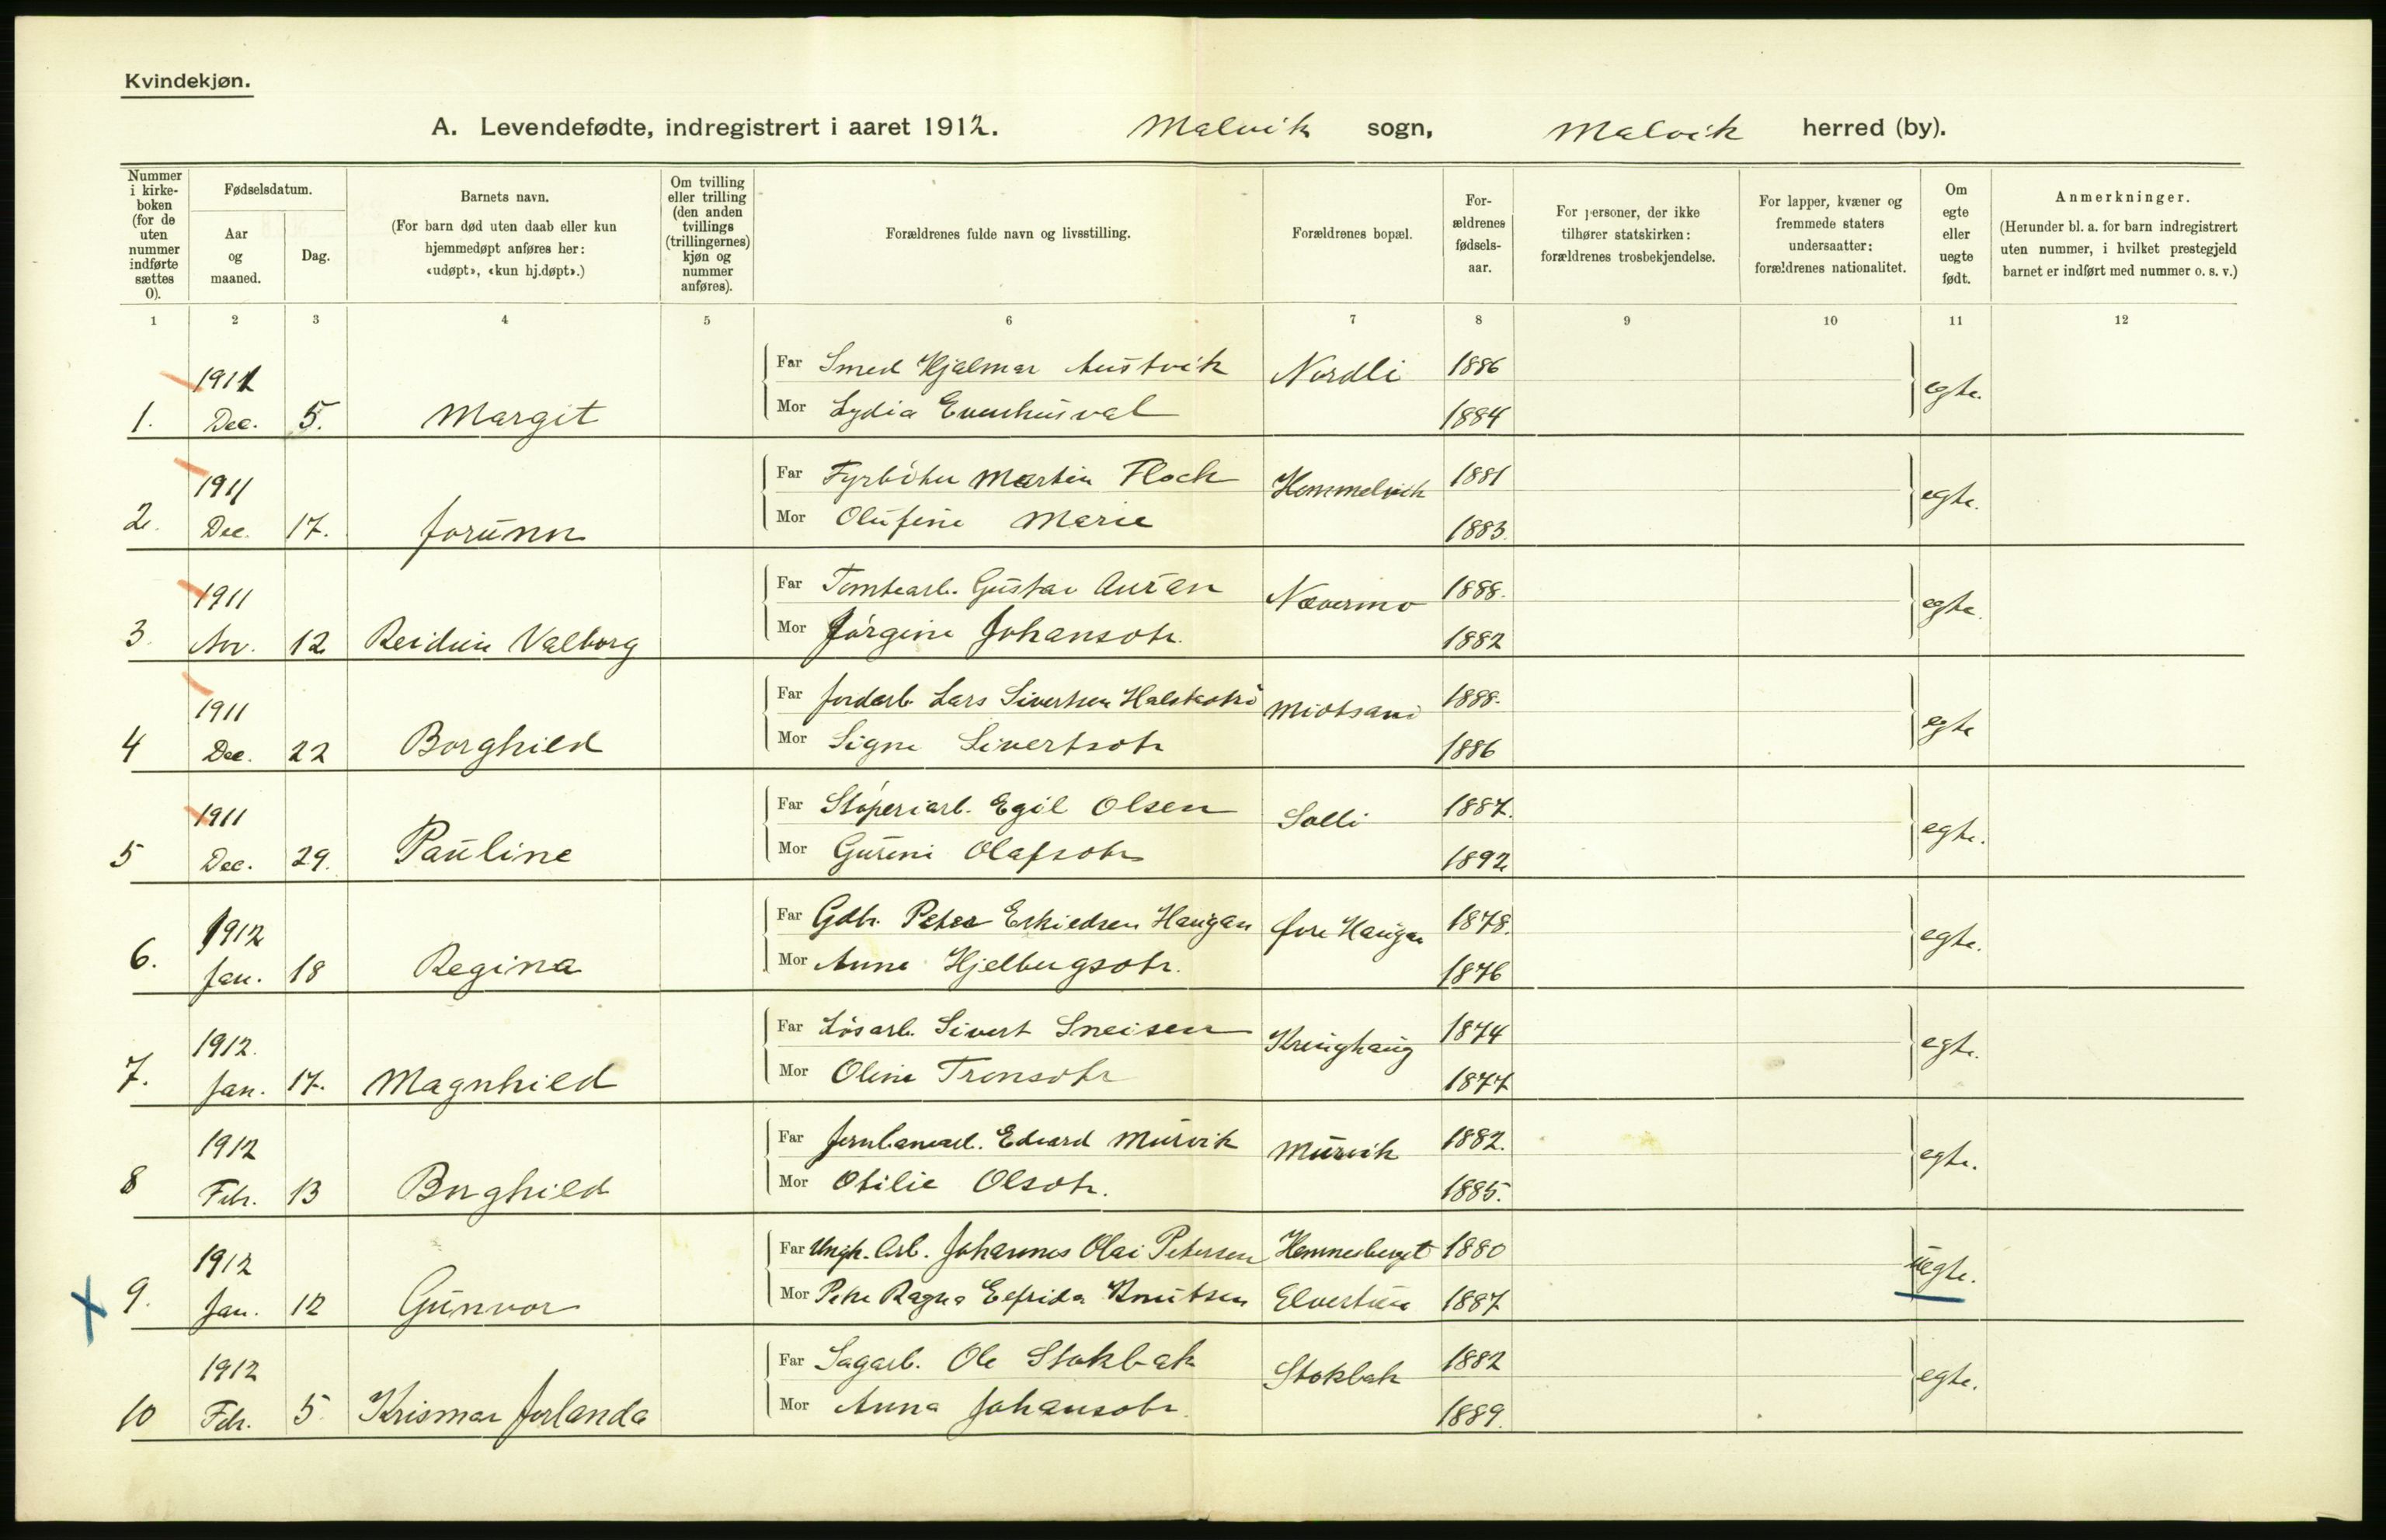 Kvindekjøn.
A. Levendefødte, indregistrert i aaret 1912. Malvik sogn, Malvik herred (by).
Nummer i kirke- boken (for de uten nummer indførte sættes 0).
Fødselsdatum.
Aar og maaned.
Dag.
Barnets navn.
(For barn død uten daab eller kun hjemmedøpt anføres her: «udøpt», «kun hj.døpt».)
Om tvilling eller trilling (den anden tvillings (trillingernes) kjøn og nummer anføres).
Forældrenes fulde navn og livsstilling.
Forældrenes bopæl.
For- ældrenes fødsels- aar.
For personer, der ikke tilhører statskirken: forældrenes trosbekjendelse.
For lapper, kvæner og fremmede staters undersaatter: forældrenes nationalitet.
Om egte eller uegte født.
Anmerkninger.
(Herunder bl. a. for barn indregistrert uten nummer, i hvilket prestegjeld barnet er indført med nummer o. s. v.)
1 2 3 4 5 6 7 8 9 10 11 12
1911 Far Smed Hjalmar Austvik Nordli 1886
1. Dec. 5. Margit Mor Lydia 1884 egte.
1911 Far Fyrbøter Martin Flock Hommelvik 1881
2. Dec. 17. Jorunn Mor Olufine Marie 1883. egte.
1911 Far Tomtearb. Gustav Auran Nævermo 1888.
3. Nov. 12 Reidun Valborg Mor Jørgine Johansdtr. 1882 egte.
1911 Far Jordarb. Lars Sivertsen 1888.
4 Dec. 22 Borghild Mor Signe Sivertsdtr 1886 egte
1911 Far Støperiarb. Egil Olsen Solli 1887.
5 Dec. 29. Pauline Mor Gurine Olafsdtr 1892 egte.
1912 Far Gdbr. Peter Haugan Øvre Haugan 1878.
6. Jan. 18 Regina Mor Anna 1876 egte.
1912. Far Løsarb. Sivert Sneisen Kringhaug 1874
7. Jan. 17. Magnhild Mor Oline Tronsdtr 1877 egte.
1912 Far Jernbanearb. Edvard Murvik Murvik 1882.
8 Febr. 13 Borghild Mor Otilie Olsdtr. 1885. egte.
1912 Far Ungk. Arb. Johannes Olai Petersen Hemnesberget 1880
9. Jan. 12 Gunvor Mor Petra Ragna Elfrida Knutsen Elvertrøen 1887 uegte.
1912 Far Sagarb. Ole Stokbak Stokbak 1882
10 Febr. 5. Krismar Jorlanda Mor Anna Johansdtr. 1889. egte.